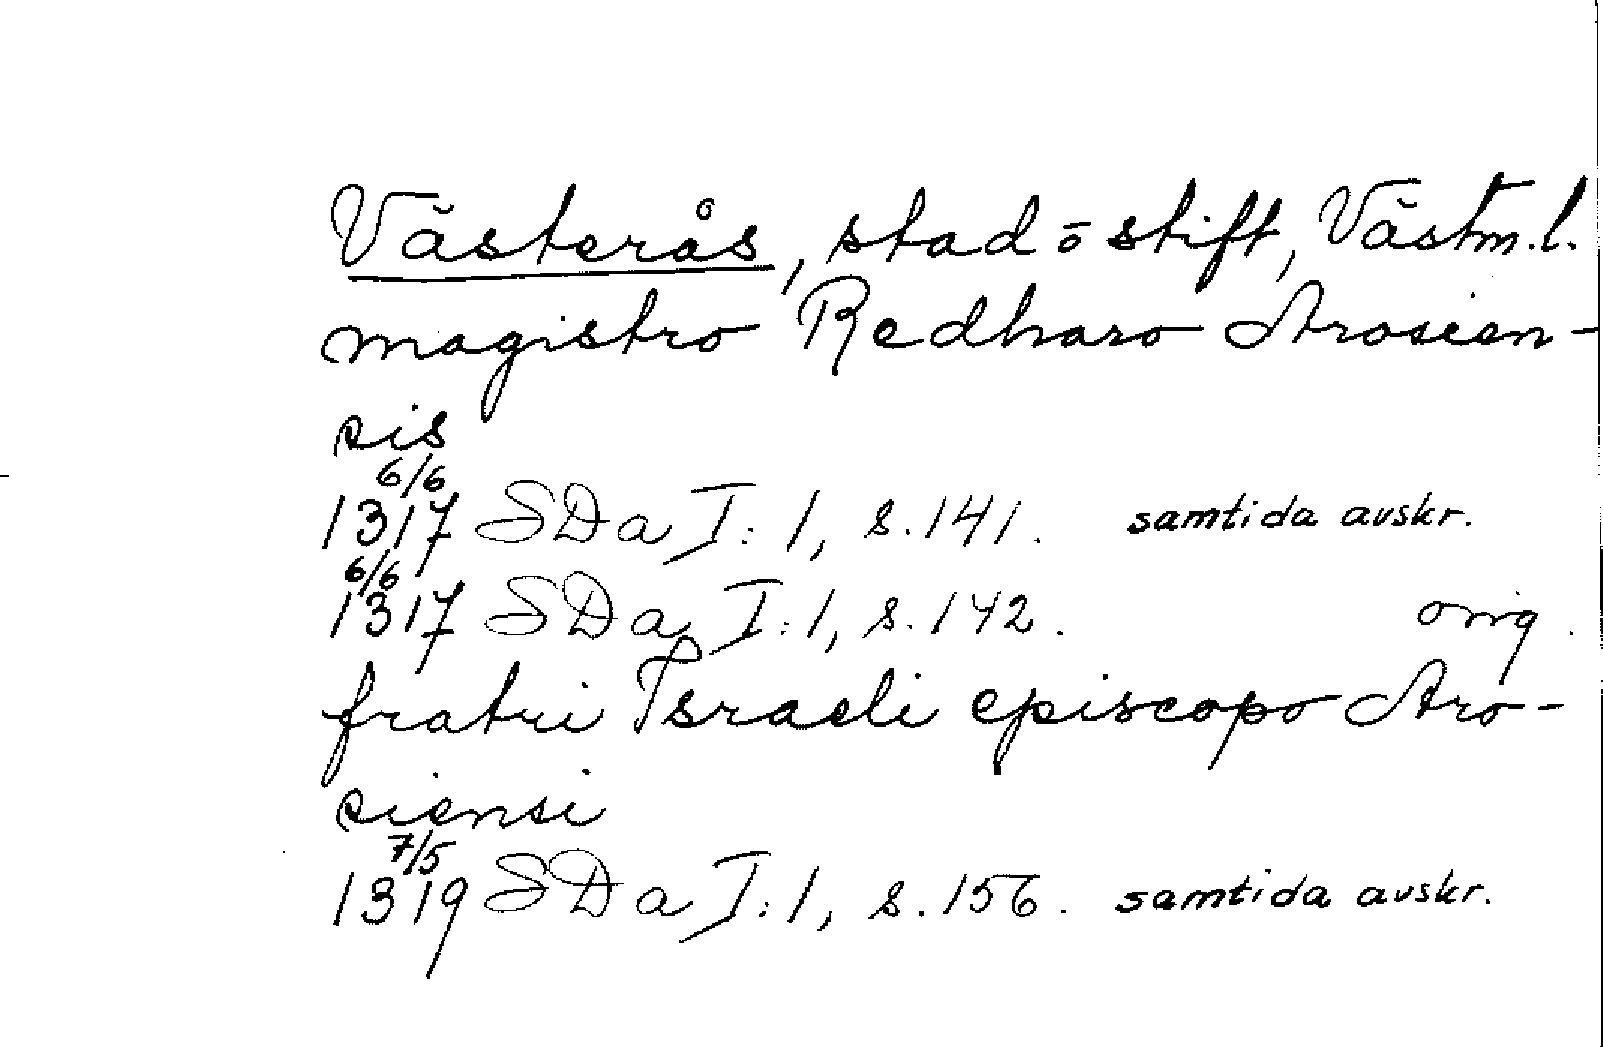 Västerås, stad o stift, Västm.l.
magistro Redharo Arosien-
sis
6/6
1317 SDa I:1, s.141. samtida avskr.
6/6
1317 SDa I:1, s.142. orig.
fratri Israeli episcopo Aro-
siensi
7/5
1319 SDa I:1, s.156. samtida avskr.